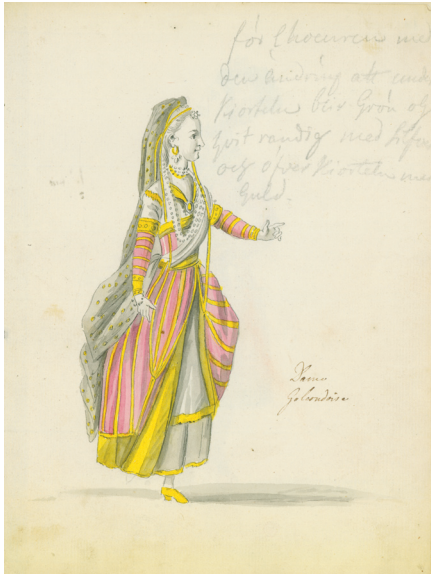 för Choeuren med
den ändring att
Kiorteln blir Grön och
hvit randig med
och öfver Kiorteln med
Guld.
Dame
Golcondoise